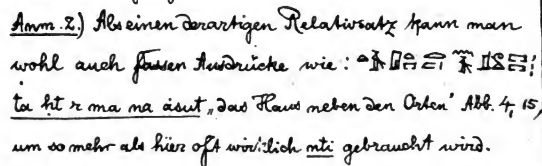 Anm. 2.) Als einen derartigen Relativsatz kann man
wohl auch fassen Ausdrücke wie:
ta ht r ma na ȧsut „das Haus neben den Orten" Abb. 4, 15,
um so mehr als hier oft wirklich nti gebraucht wird.